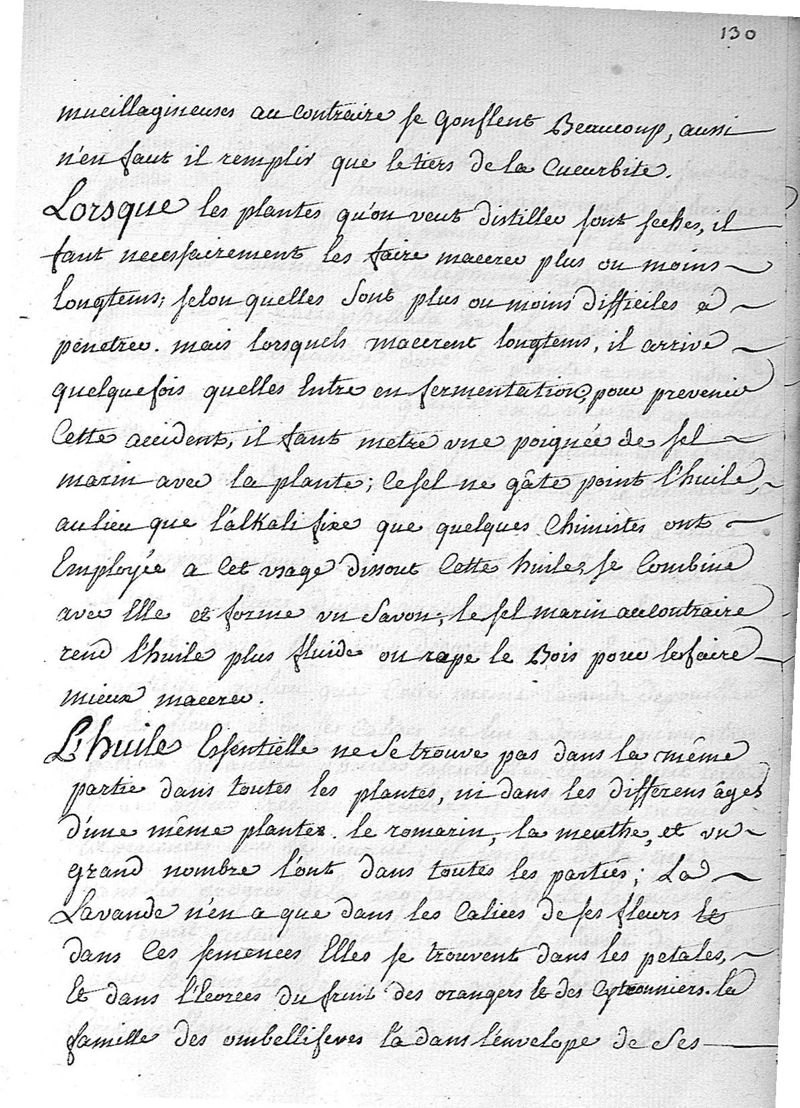 130
mucillagineuses au contraire se gonflent Beaucoup, aussi
n'en faut il remplir que le tiers de la Cucurbite.
Lorsque les plantes qu'on veut distiller sont seches, il
faut necessairement les faire macerer plus ou moins
longtems, selon quelles sont plus ou moins difficiles a
penetrer. mais lorsquels macerent longtems, il arrive
quelquefois quelles Entre en fermentation, pour prevenir
Cette accident, il faut metre une poignée de sel
marin avec la plante; ce sel ne gâte point l'huile,
au lieu que l'alkali fixe que quelques Chimistes ont
Employée a cet usage dissout Cette huile, se Combine
avec Elle et forme un Savon, le sel marin au contraire
rend l'huile plus fluide ou rape le Bois pour le faire
mieux macerer.
L'huile Essentielle ne se trouve pas dans la même
partie dans toutes les plantes, ni dans les différens âges
d'une même plantes. le romarin, la menthe, et un
grand nombre l'ont dans toutes les parties; La
Lavande n'en a que dans les Calices de ses fleurs Et
dans Ces semences Elles se trouvent dans les petales,
Et dans l'écorces du fruit des orangers Et des Cytronniers. la
famille des ombelliferes l'a dans l'envelope de Ses